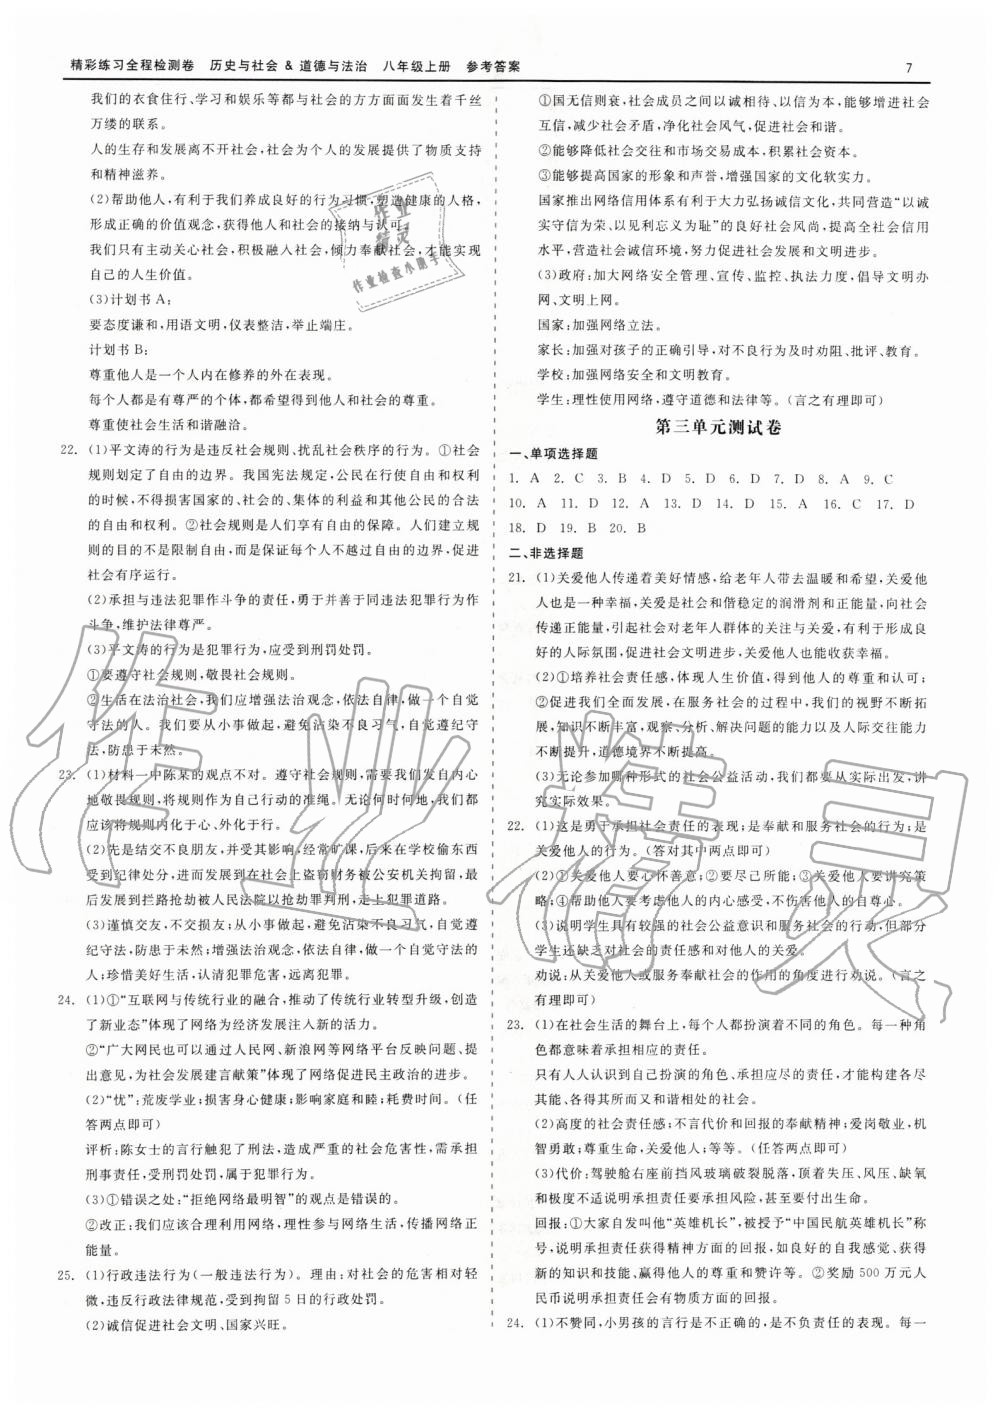 精彩练习全程检测卷 历史与社会 & 道德与法治 八年级上册 参考答案
7
我们的衣食住行、学习和娱乐等都与社会的方方面面发生着千丝
万缕的联系。
人的生存和发展离不开社会,社会为个人的发展提供了物质支持
和精神滋养。
(2)帮助他人,有利于我们养成良好的行为习惯,塑造健康的人格,
形成正确的价值观念,获得他人和社会的接纳与认可。
我们只有主动关心社会,积极融入社会,倾力奉献社会,才能实现
自己的人生价值。
(3)计划书 A:
要态度谦和,用语文明,仪表整洁,举止端庄。
计划书 B:
尊重他人是一个人内在修养的外在表现。
每个人都是有尊严的个体,都希望得到他人和社会的尊重。
尊重使社会生活和谐融洽。
22. (1)平文涛的行为是违反社会规则、扰乱社会秩序的行为。①社会
规则划定了自由的边界。我国宪法规定,公民在行使自由和权利
的时候,不得损害国家的、社会的、集体的利益和其他公民的合法
的自由和权利。②社会规则是人们享有自由的保障。人们建立规
则的目的不是限制自由,而是保证每个人不越自由的边界,促进
社会有序运行。
(2)承担与违法犯罪作斗争的责任,勇于并善于同违法犯罪行为作
斗争,维护法律尊严。
(3)平文涛的行为是犯罪行为,应受到刑罚处罚。
①要遵守社会规则,敬畏社会规则。
②生活在法治社会,我们应增强法治观念,依法自律,做一个自觉
守法的人。我们要从小事做起,避免沾染不良习气,自觉遵纪守
法,防患于未然。
23. (1)材料一中陈某的观点不对。遵守社会规则,需要我们发自内心
地敬畏规则,将规则作为自己行动的准绳。无论何时何地,我们都
应该将规则内化于心、外化于行。
(2)先是结交不良朋友,并受其影响,经常旷课,后来在学校偷东西
受到纪律处分,进而发展到在社会上盗窃财务被公安机关拘留,最
后发展到拦路抢劫被人民法院以抢劫罪判刑,走上犯罪道路。
(3)谨慎交友,不交损友;从小事做起,避免沾染不良习气,自觉遵
纪守法,防患于未然;增强法治观念,依法自律,做一个自觉守法的
人;珍惜美好生活,认清犯罪危害,远离犯罪。
24. (1)①“互联网与传统行业的融合,推动了传统行业转型升级,创造
了新业态”体现了网络为经济发展注入新的活力。
②“广大网民也可以通过人民网、新浪网等网络平台反映问题、提
出意见,为社会发展建言献策”体现了网络促进民主政治的进步。
(2)“忧”:荒废学业;损害身心健康;影响家庭和睦;耗费时间。(任
答两点即可)
评析:陈女士的言行触犯了刑法,造成严重的社会危害性,需承担
刑事责任,受到刑罚处罚,属于犯罪行为。
(3)①错误之处:“拒绝网络最明智”的观点是错误的。
②改正:我们应该合理利用网络,理性参与网络生活,传播网络正
能量。
25. (1)行政违法行为(一般违法行为)。理由:对社会的危害相对轻
微,违反行政法律规范,受到拘留 5 日的行政处罚。
(2)诚信促进社会文明、国家兴旺。
①国无信则衰,社会成员之间以诚相待、以信为本,能够增进社会
互信,减少社会矛盾,净化社会风气,促进社会和谐。
②能够降低社会交往和市场交易成本,积累社会资本。
③能够提高国家的形象和声誉,增强国家的文化软实力。
国家推出网络信用体系有利于大力弘扬诚信文化,共同营造“以诚
实守信为荣、以见利忘义为耻”的良好社会风尚,提升全社会信用
水平,营造社会诚信环境,努力促进社会发展和文明进步。
(3)政府:加大网络安全管理、宣传、监控、执法力度,倡导文明办
网、文明上网。
国家:加强网络立法。
家长:加强对孩子的正确引导,对不良行为及时劝阻、批评、教育。
学校:加强网络安全和文明教育。
学生:理性使用网络,遵守道德和法律等。(言之有理即可)
第三单元测试卷
一、单项选择题
1. A 2. C 3. B 4. D 5. D 6. D 7. D 8. A 9. C
10. A 11. D 12. A 13. A 14. D 15. A 16. C 17. D
18. D 19. B 20. B
二、非选择题
21. (1)关爱他人传递着美好情感,给老年人带去温暖和希望;关爱他
人也是一种幸福,关爱是社会和谐稳定的润滑剂和正能量,向社会
传递正能量,引起社会对老年人群体的关注与关爱,有利于形成良
好的人际氛围,促进社会文明进步,关爱他人也能收获幸福。
(2)①培养社会责任感,体现人生价值,得到他人的尊重和认可;
②促进我们全面发展,在服务社会的过程中,我们的视野不断拓
展,知识不断丰富,观察、分析、解决问题的能力以及人际交往能力
不断提升,道德境界不断提高。
(3)无论参加哪种形式的社会公益活动,我们都要从实际出发,讲
究实际效果。
22. (1)这是勇于承担社会责任的表现;是奉献和服务社会的行为;是
关爱他人的行为。(答对其中两点即可)
(2)①关爱他人要心怀善意;②要尽己所能;③关爱他人要讲究策
略;④帮助他人要考虑他人的内心感受,不伤害他人的自尊心。
(3)说明学生具有较强的社会公益意识和服务社会的行动,但部分
学生还缺乏对社会的责任感和对他人的关爱。
劝说:从关爱他人或服务奉献社会的作用的角度进行劝说。(言之
有理即可)
23. (1)在社会生活的舞台上,每个人都扮演着不同的角色。每一种角
色都意味着承担相应的责任。
只有人人认识到自己扮演的角色、承担应尽的责任,才能建设各尽
其能、各得其所而又和谐相处的社会。
(2)高度的社会责任感;不言代价和回报的奉献精神;爱岗敬业,机
智勇敢;尊重生命,关爱他人;等等。(任答两点即可)
(3)代价:驾驶舱右座前挡风玻璃破裂脱落,顶着失压、风压、缺氧
和极度不适说明承担责任要承担风险,甚至可能付出生命。
回报:①大家自发叫他“英雄机长”,被授予“中国民航英雄机长”称
号,说明承担责任获得精神方面的回报,如良好的自我感觉、获得
新的知识和技能、赢得他人的尊重和赞许等。②奖励 500 万元人
民币说明承担责任会有物质方面的回报。
24. (1)不赞同,小男孩的言行是不正确的,是不负责任的表现。每一
作业
精灵
作业检查小助手
作业精灵